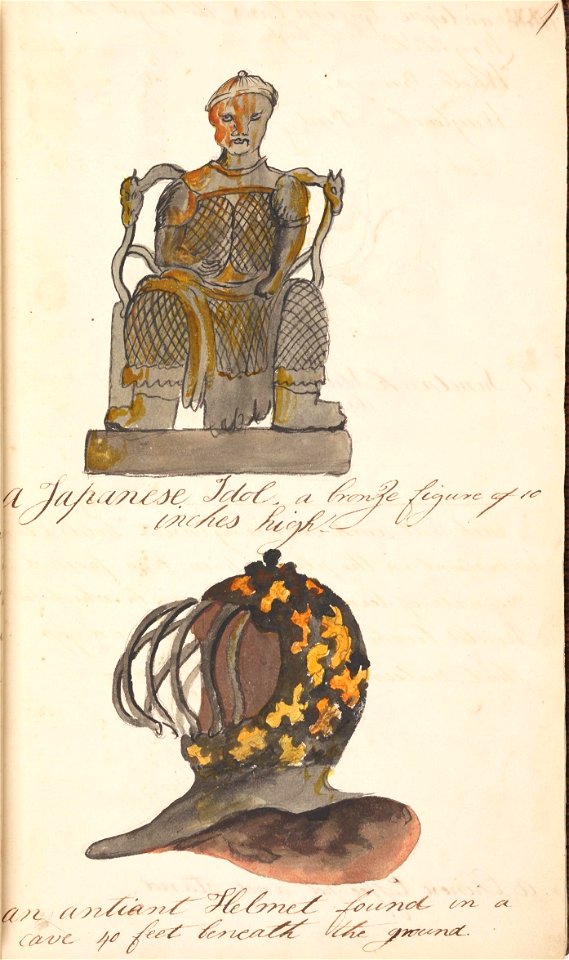 1
a Japanese Idol, a bronze figure of 10
inches high.
an antiant Helmet found in a
cave 40 feet beneath the ground.